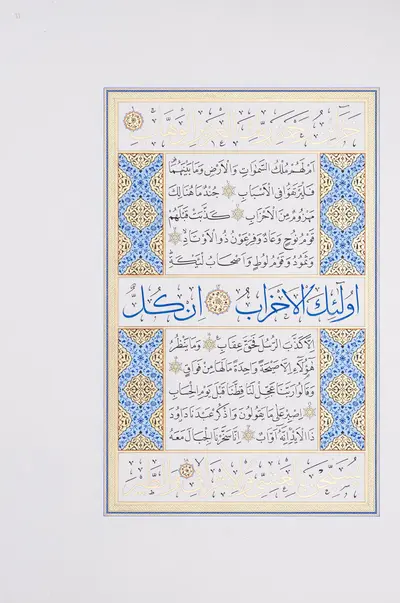 اَمْ لَهُمْ مُلْكُ السَّمٰوَاتِ وَالْاَرْضِ وَمَا بَيْنَهُمَا
فَلْيَرْتَقُوا فِي الْاَسْبَابِ جُنْدٌ مَا هُنَالِكَ
مَهْزُومٌ مِنَ الْاَحْزَابِ كَذَّبَتْ قَبْلَهُمْ
قَوْمُ نُوحٍ وَعَادٌ وَفِرْعَوْنُ ذُو الْاَوْتَادِ
وَثَمُودُ وَقَوْمُ لُوطٍ وَاَصْحَابُ لْـَٔيْكَةِ
اُولٰٓئِكَ الْاَحْزَابُ اِنْ كُلٌّ
اِلَّا كَذَّبَ الرُّسُلَ فَحَقَّ عِقَابِ وَمَا يَنْظُرُ
هٰٓؤُلَاۤءِ اِلَّا صَيْحَةً وَاحِدَةً مَا لَهَا مِنْ فَوَاقٍ
وَقَالُوا رَبَّنَا عَجِّلْ لَنَا قِطَّنَا قَبْلَ يَوْمِ الْحِسَابِ
اِصْبِرْ عَلٰى مَا يَقُولُونَ وَاذْكُرْ عَبْدَنَا دَاوُدَ
ذَا الْاَيْدِ اِنَّهُ اَوَّابٌ اِنَّا سَخَّرْنَا الْجِبَالَ مَعَهُ